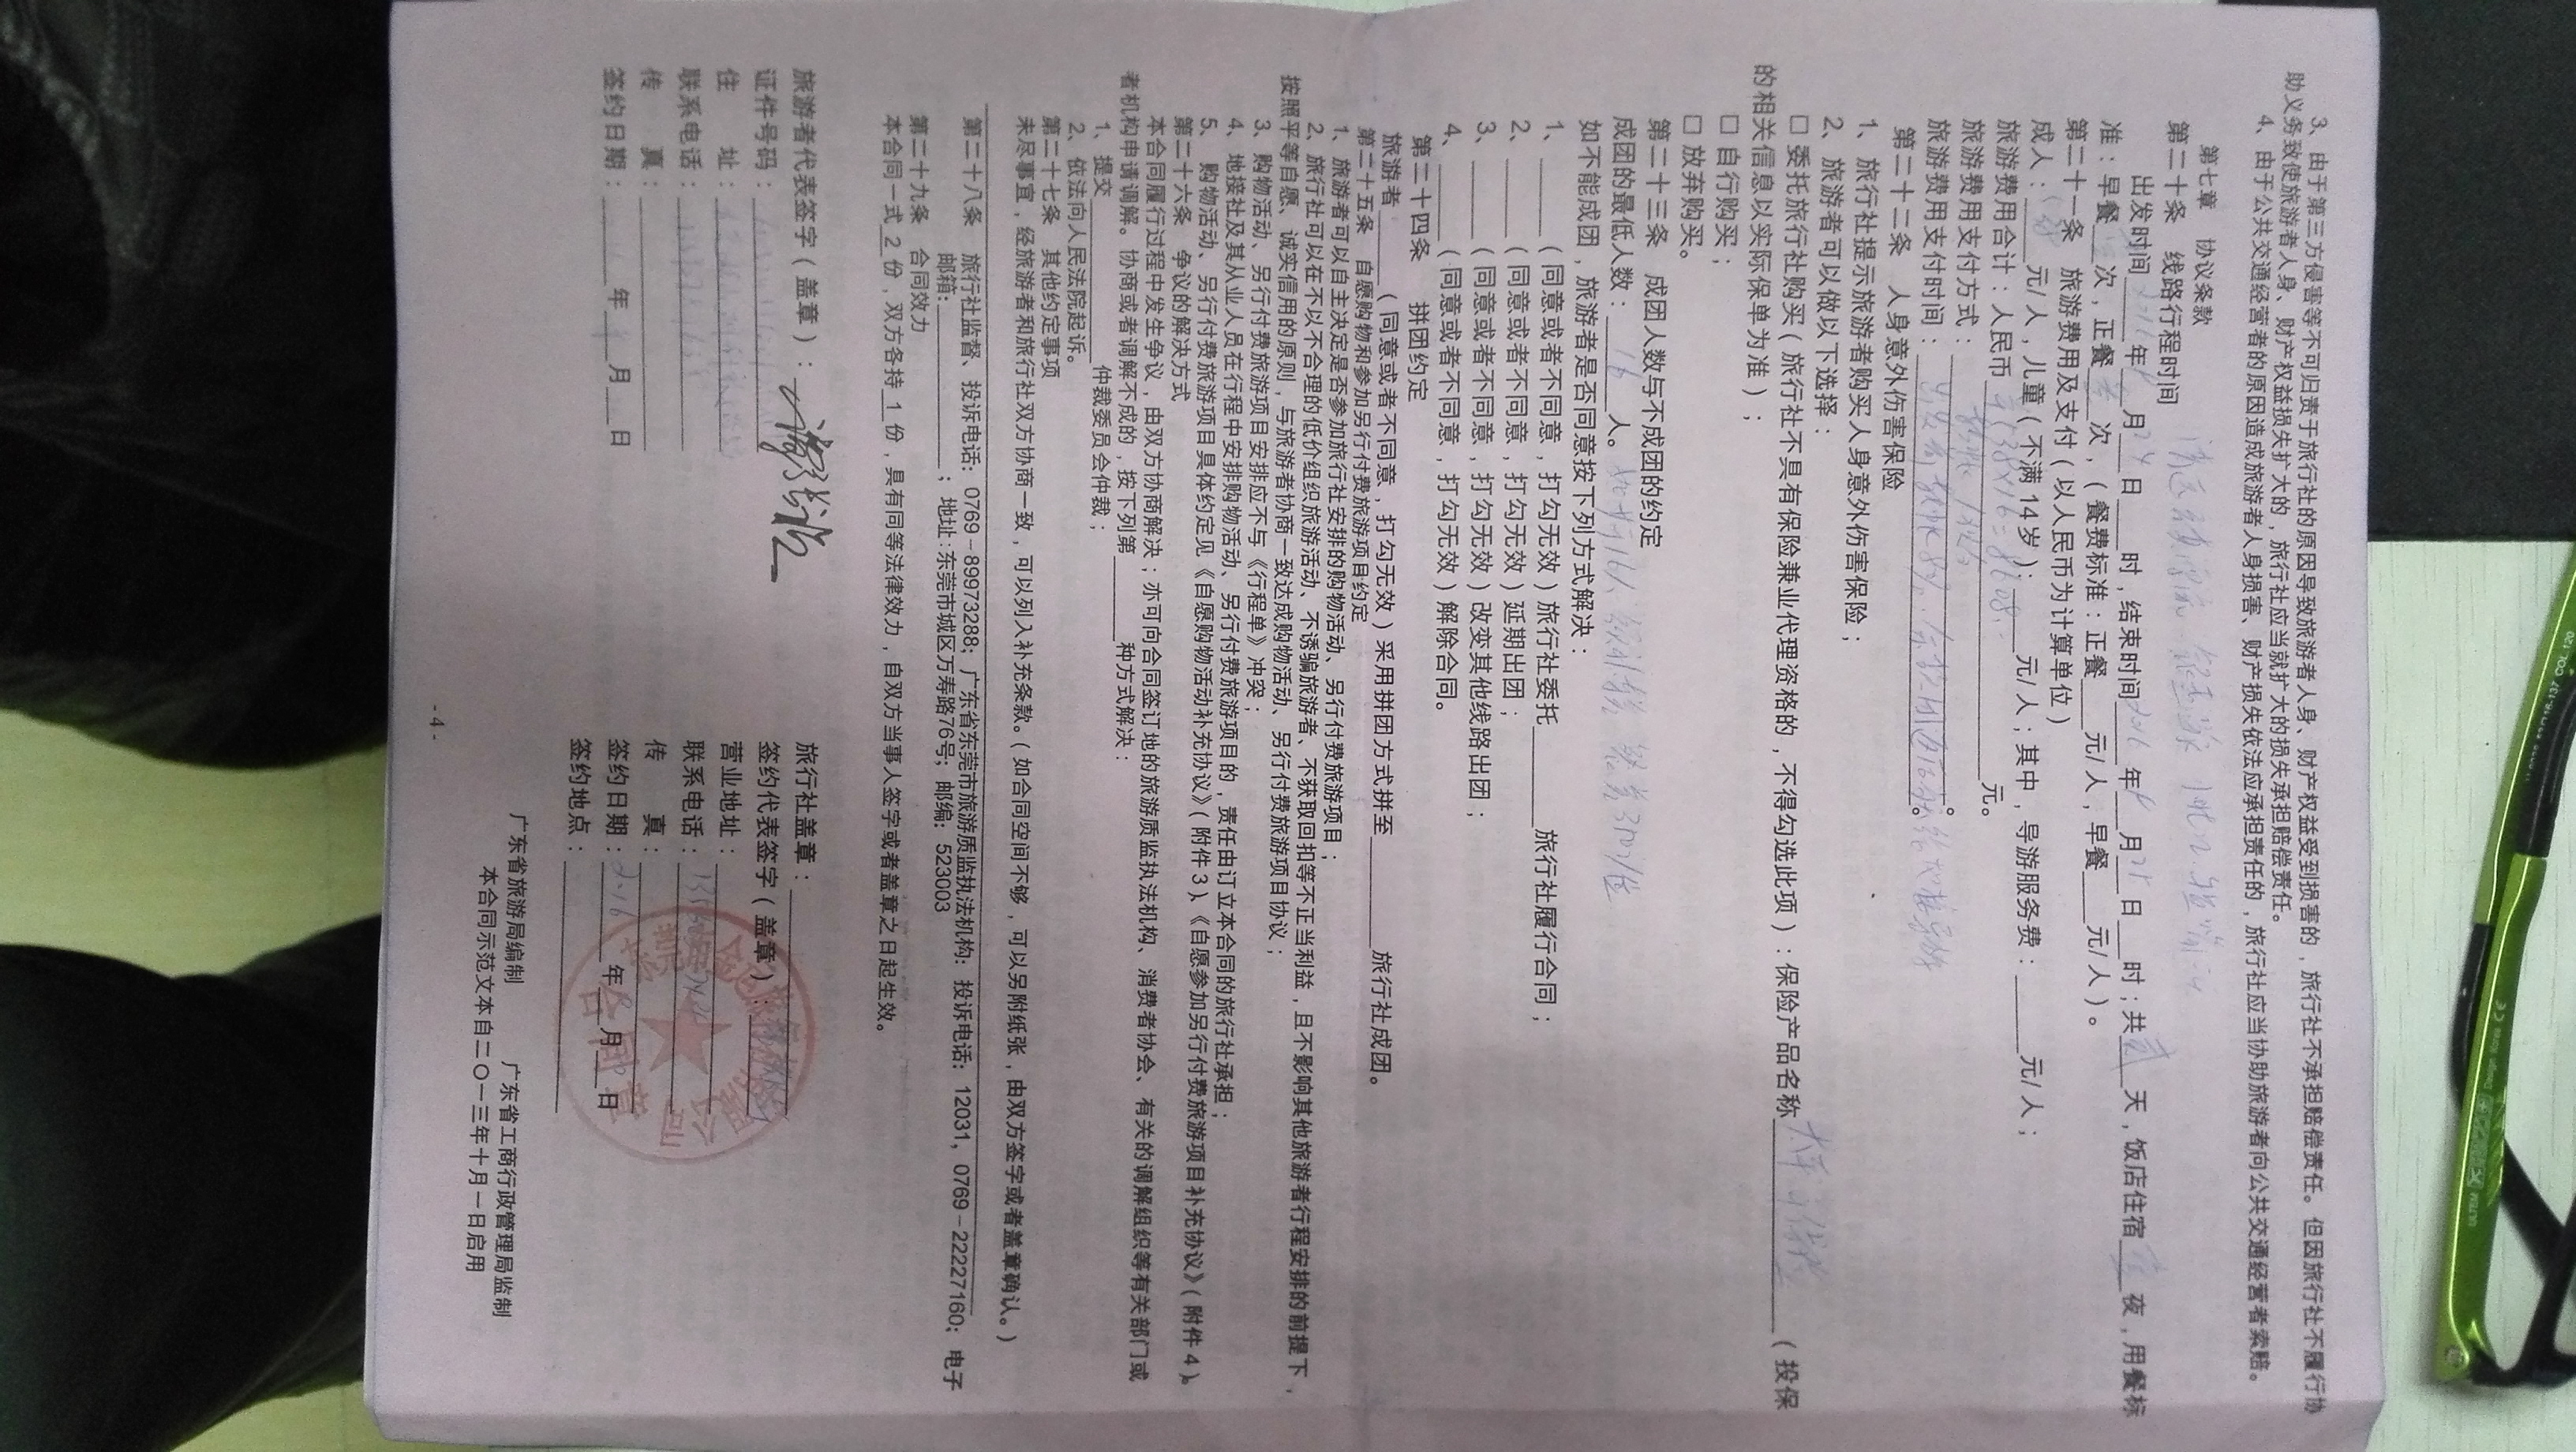 3、由于第三方侵害等不可归责于旅行社的原因导致旅游者人身、财产权益受到损害的，旅行社不承担赔偿责任。但因旅行社不履行协
助义务致使旅游者人身、财产权益损失扩大的，旅行社应当就扩大的损失承担赔偿责任。
4、由于公共交通经营者的原因造成旅游者人身损害、财产损失依法应承担责任的，旅行社应当协助旅游者向公共交通经营者索赔。
第七章 协议条款
第二十条 线路行程时间
出发时间2016年 月24日 时，结束时间2016年 月25日 时；共贰天，饭店住宿 夜，用餐标
准：早餐 次，正餐 次，（餐费标准：正餐 元/人，早餐 元/人）。
第二十一条 旅游费用及支付（以人民币为计算单位）
成人： 元/人，儿童（不满 14岁）： 元/人；其中，导游服务费： 元/人；
旅游费用合计：人民币 538×16=8608 元。
旅游费用支付方式： 。
旅游费用支付时间： 。
第二十二条 人身意外伤害保险
1、旅行社提示旅游者购买人身意外伤害保险；
2、旅游者可以做以下选择：
□ 委托旅行社购买（旅行社不具有保险兼业代理资格的，不得勾选此项）：保险产品名称 （投保
的相关信息以实际保单为准）；
□ 自行购买；
□ 放弃购买。
第二十三条 成团人数与不成团的约定
成团的最低人数：16人。
如不能成团，旅游者是否同意按下列方式解决：
1、 （同意或者不同意，打勾无效）旅行社委托 旅行社履行合同；
2、 （同意或者不同意，打勾无效）延期出团；
3、 （同意或者不同意，打勾无效）改变其他线路出团；
4、 （同意或者不同意，打勾无效）解除合同。
第二十四条 拼团约定
旅游者 （同意或者不同意，打勾无效）采用拼团方式拼至 旅行社成团。
第二十五条 自愿购物和参加另行付费旅游项目约定
1、旅游者可以自主决定是否参加旅行社安排的购物活动、另行付费旅游项目；
2、旅行社可以在不以不合理的低价组织旅游活动、不诱骗旅游者、不获取回扣等不正当利益，且不影响其他旅游者行程安排的前提下，
按照平等自愿、诚实信用的原则，与旅游者协商一致达成购物活动、另行付费旅游项目协议；
3、购物活动、另行付费旅游项目安排应不与《行程单》冲突；
4、地接社及其从业人员在行程中安排购物活动、另行付费旅游项目的，责任由订立本合同的旅行社承担；
5、购物活动、另行付费旅游项目具体约定见《自愿购物活动补充协议》（附件 3）、《自愿参加另行付费旅游项目补充协议》（附件 4）。
第二十六条 争议的解决方式
本合同履行过程中发生争议，由双方协商解决；亦可向合同签订地的旅游质监执法机构、消费者协会、有关的调解组织等有关部门或
者机构申请调解。协商或者调解不成的，按下列第 种方式解决：
1、提交 仲裁委员会仲裁；
2、依法向人民法院起诉。
第二十七条 其他约定事项
未尽事宜，经旅游者和旅行社双方协商一致，可以列入补充条款。（如合同空间不够，可以另附纸张，由双方签字或者盖章确认。）
第二十八条 旅行社监督、投诉电话：0769-89973288；广东省东莞市旅游质监执法机构：投诉电话：12031，0769-22227160；电子
邮箱： ；地址：东莞市城区万寿路76号；邮编：523003
第二十九条 合同效力
本合同一式 2 份，双方各持 1 份，具有同等法律效力，自双方当事人签字或者盖章之日起生效。
旅游者代表签字（盖章）：
证件号码：
住 址：
联系电话：
传 真：
签约日期： 年 月 日
旅行社盖章：
签约代表签字（盖章）：
营业地址：
联系电话：
传 真：
签约日期：2016年 月 日
签约地点：
广东省旅游局编制 广东省工商行政管理局监制
本合同示范文本自二〇一三年十月一日启用
- 4 -